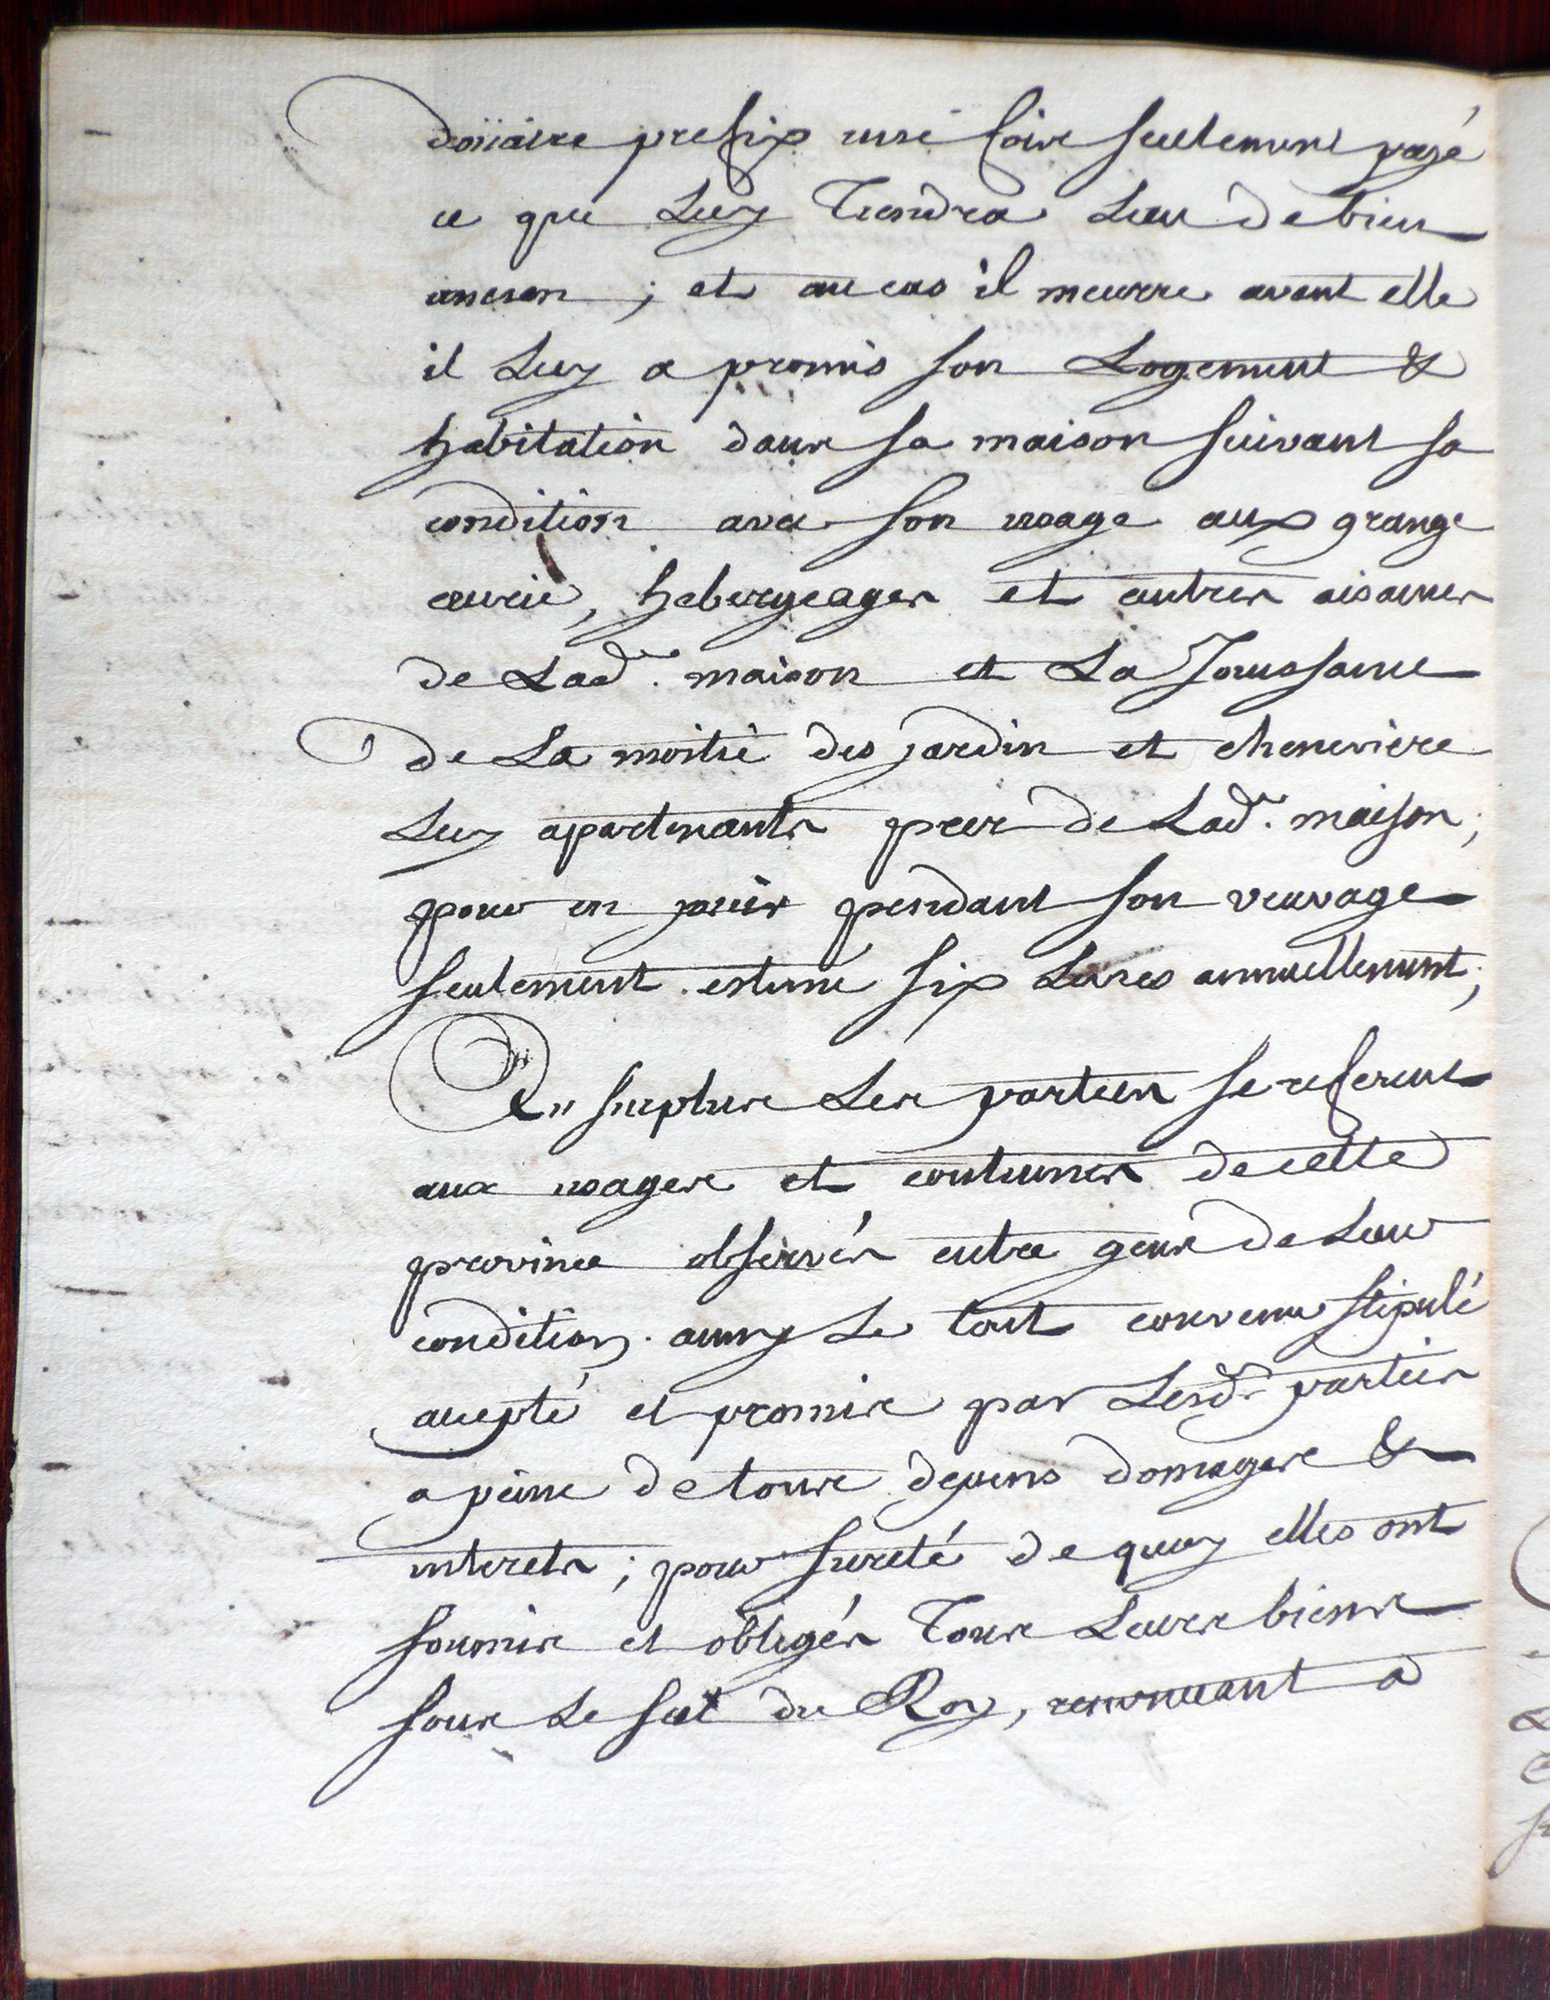 doüaire prefix une fois seulement payé
ce que Luy Tiendra Lieu de bien
ancien ; et au cas il meurre avant elle
il Luy a promis son Logement &
habitation dans sa maison suivant sa
condition avec son usage aux grange
ecurie, hebergeages et autres aisances
de Lad.e maison et La Jouissance
de La moitié des jardin et cheneviere
Luy apartenants pres de Lad.e maison ;
pour en jouir pendant son veuvage
seulement estimé six Livres annuellement ;
Au surplus Les parties se referent
aux usages et coutumes de cette
province observés entre gens de Leur
condition. ainsy Le tout convenu stipulé
accepté et promis par Lesd.s parties
a peine de tous depens domages &
interets ; pour sureté de quoy elles ont
soumis et obligés Tous Leurs biens
sous Le scel du Roy, renonceant a